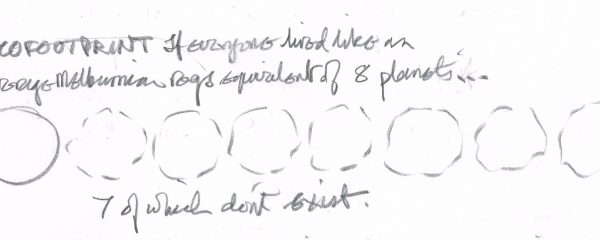 COFOOTPRINT If everyone lived like an
verage Melburnian reqs equivalent of 8 planets...
7 of which don't exist.